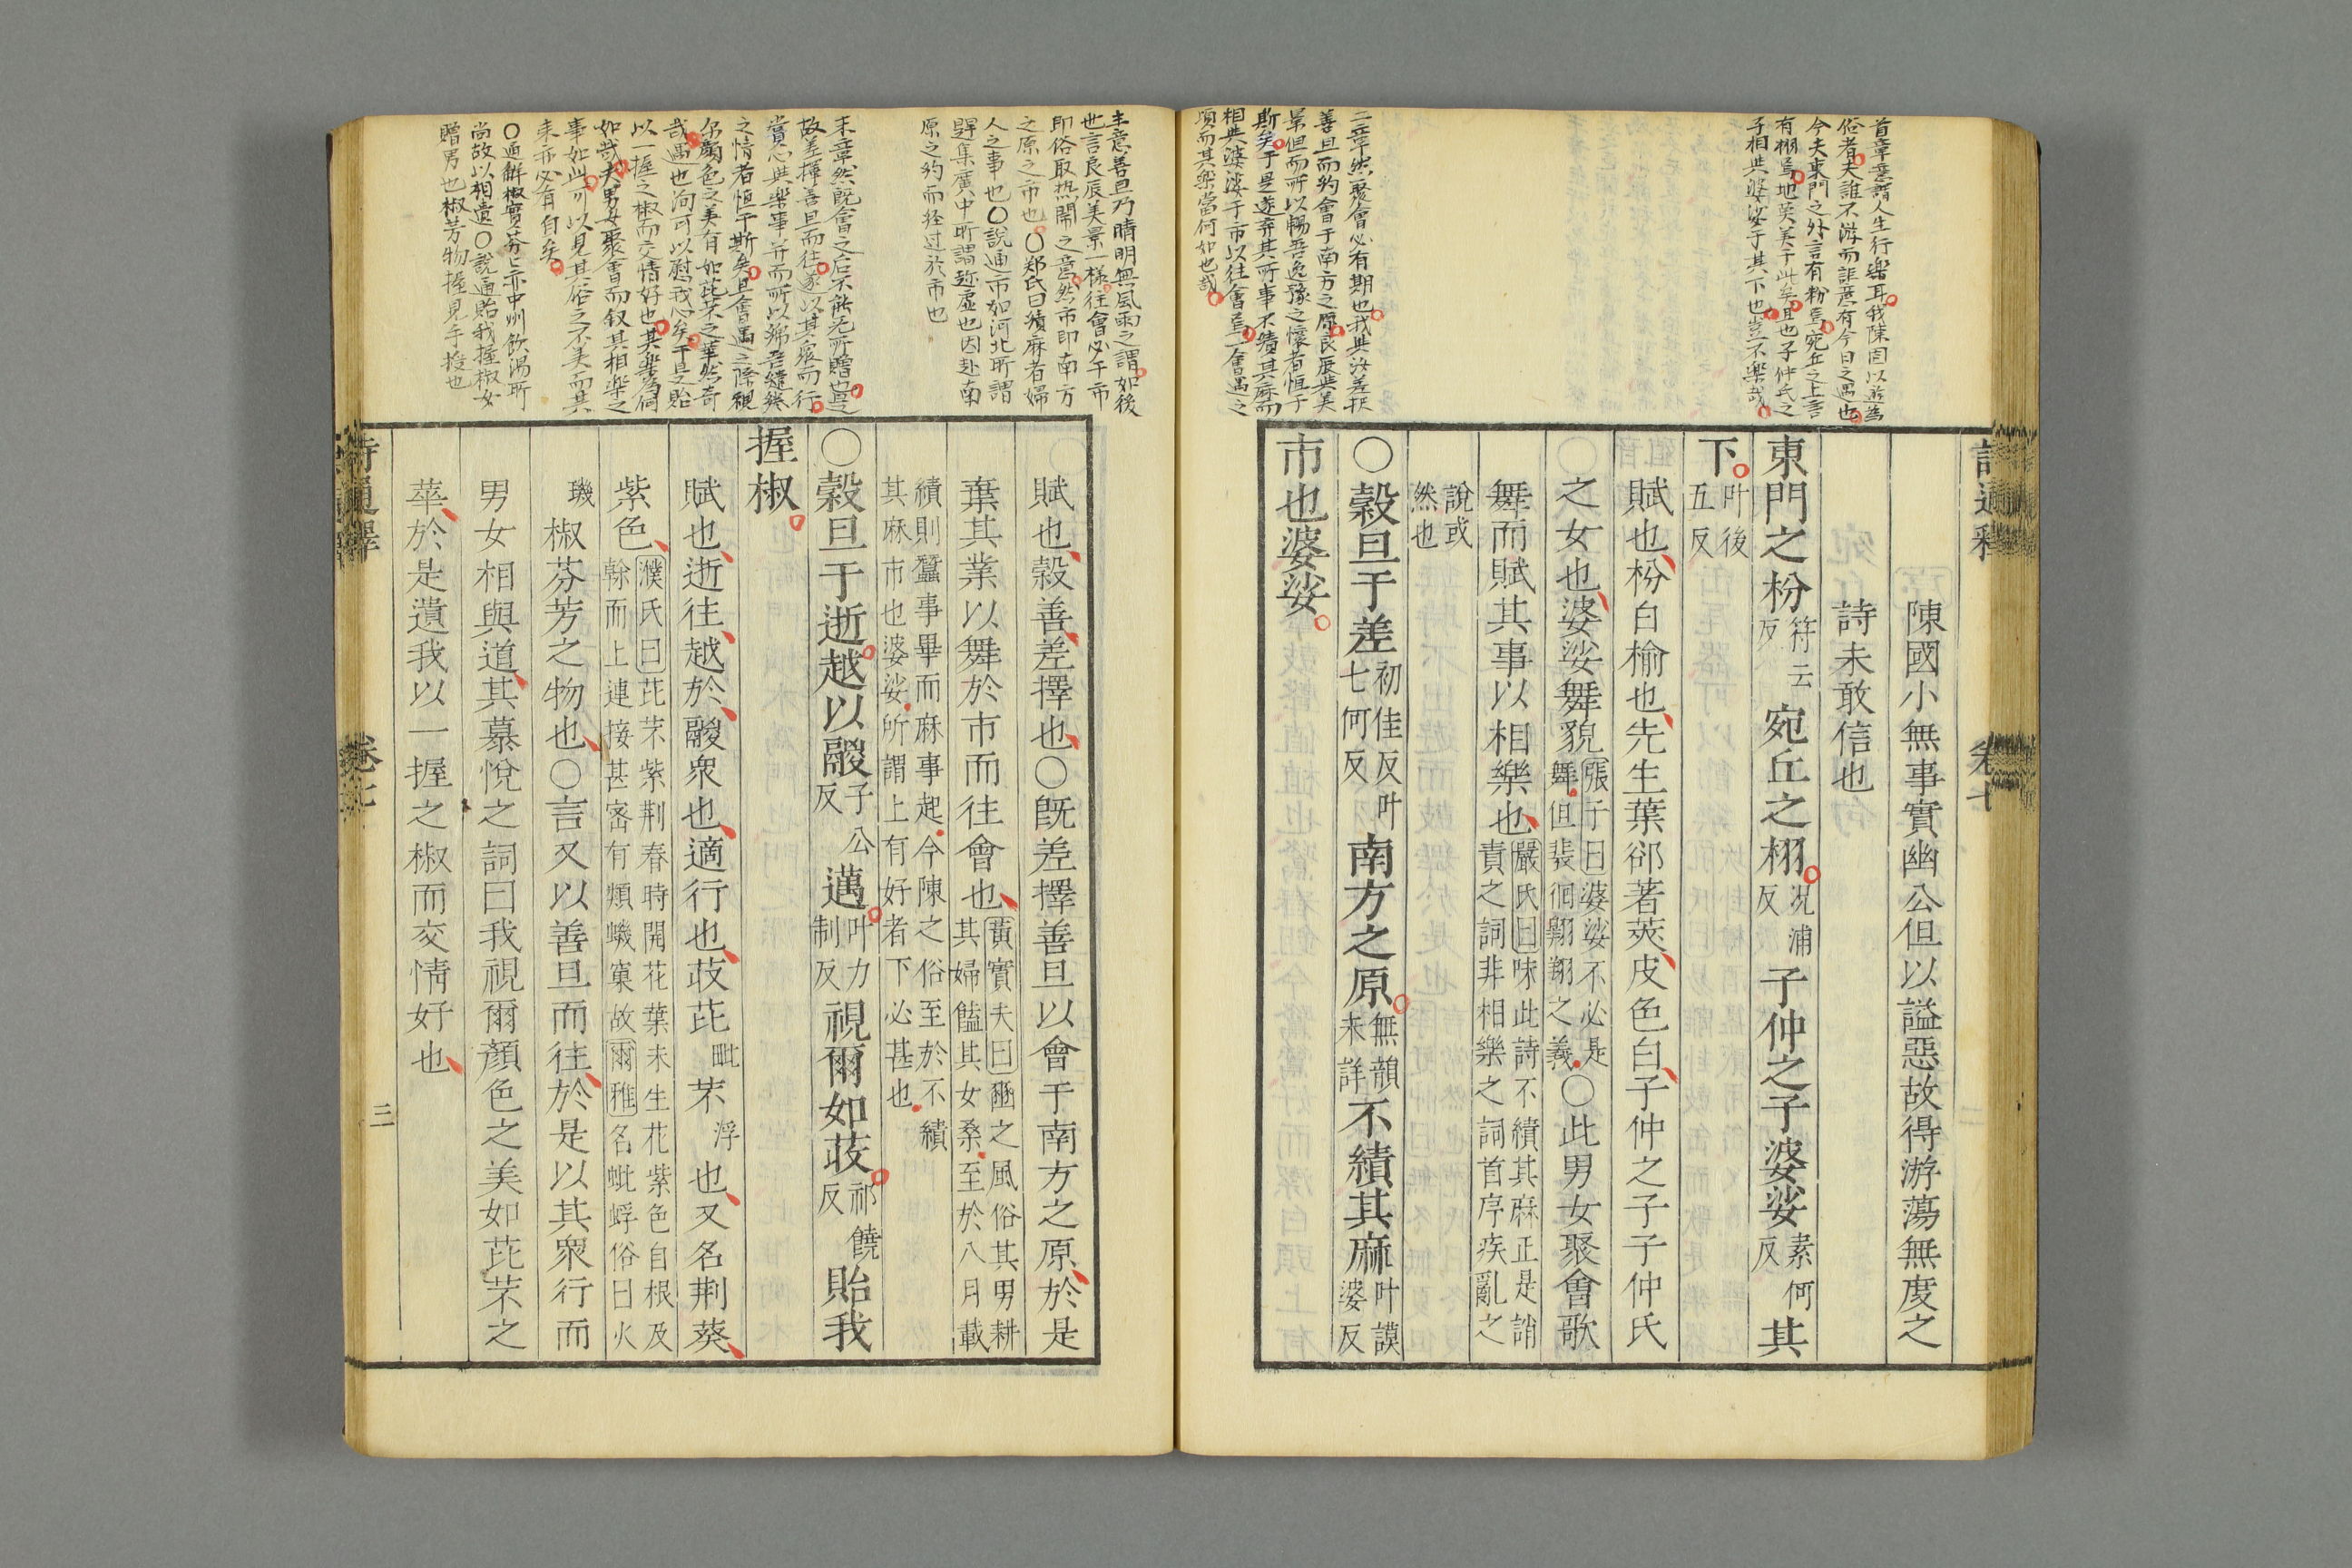 首章意謂人生行樂耳我陳固以遊為
俗者夫誰不游而詎意有今日之遇也
今夫東門之外言有枌焉宛丘之上言
有栩焉地莫美于此矣且也子仲氏之
子相與婆娑于其下也豈不樂哉
二章然聚會必有期也我與汝差択
善旦而約會于南方之原良辰與美
景但而所以暢吾逸豫之懷者恒于
斯矣于是遂棄其所事不績其麻而
相與婆娑于市以往會焉一會遇之
頃而其樂當何如也哉
詩通釋 卷七
陳國小無事實幽公但以謚惡故得游蕩無度之
詩未敢信也
東門之枌符云反宛丘之栩況浦反子仲之子婆娑素何反其
下叶後五反
賦也枌白榆也先生葉郤著莢皮色白子仲之子子仲氏
之女也婆娑舞貌張子曰婆娑不必是舞但裴徊翱翔之義〇此男女聚會歌
舞而賦其事以相樂也嚴氏曰味此詩不績其麻正是誚責之詞非相樂之詞首序疾亂之
說或然也
〇穀旦于差初佳反叶七何反南方之原無韻未詳不績其麻叶謨婆反
市也婆娑
主意善旦乃晴明無風雨之謂如後
世言良辰美景一樣往會必于市
即俗取热閙之意然市即南方
之原之市也〇郑氏曰績麻者婦
人之事也〇說通市如河北所謂
趕集廣中所謂趂虛也因赴南
原之約而経过於市也
末章然既會之后不能无所贈也是
故差擇善旦而往遂以其衆而行
賞心與樂事并而所以綈吾繾綣
之情者恒于斯矣且會遇之際視
尔顏色之美有如芘芣之華然奇
哉遇也洵可以慰我心矣于是貽
以一握之椒而交情好也其樂為何
如哉夫男女聚會而叙其相樂之
事如此可以見其俗之不美而其
来亦必有自矣
〇通解椒實芬亡亦中州飲湯所
尚故以相遺〇說通貽我握椒女
贈男也椒芳物握見手授也
賦也穀善差擇也〇旣差擇善旦以會于南方之原於是
棄其業以舞於市而往會也黃實夫曰豳之風俗其男耕其婦饁其女桑至於八月載
績則蠶事畢而麻事起今陳之俗至於不績其麻市也婆娑所謂上有好者下必甚也
〇穀旦于逝越以鬷子公反邁叶力制反視爾如荍祁饒反貽我
握椒
賦也逝往越於鬷衆也適行也荍芘毗芣浮也又名荆葵
紫色濮氏曰芘芣紫荆春時開花葉未生花紫色自根及榦而上連接甚宻有類蟣窠故爾雅名蚍蜉俗曰火
璣椒芬芳之物也〇言又以善旦而往於是以其衆行而
男女相與道其慕悅之詞曰我視爾顏色之美如芘芣之
華於是遺我以一握之椒而交情好也
詩通釋 卷七 三